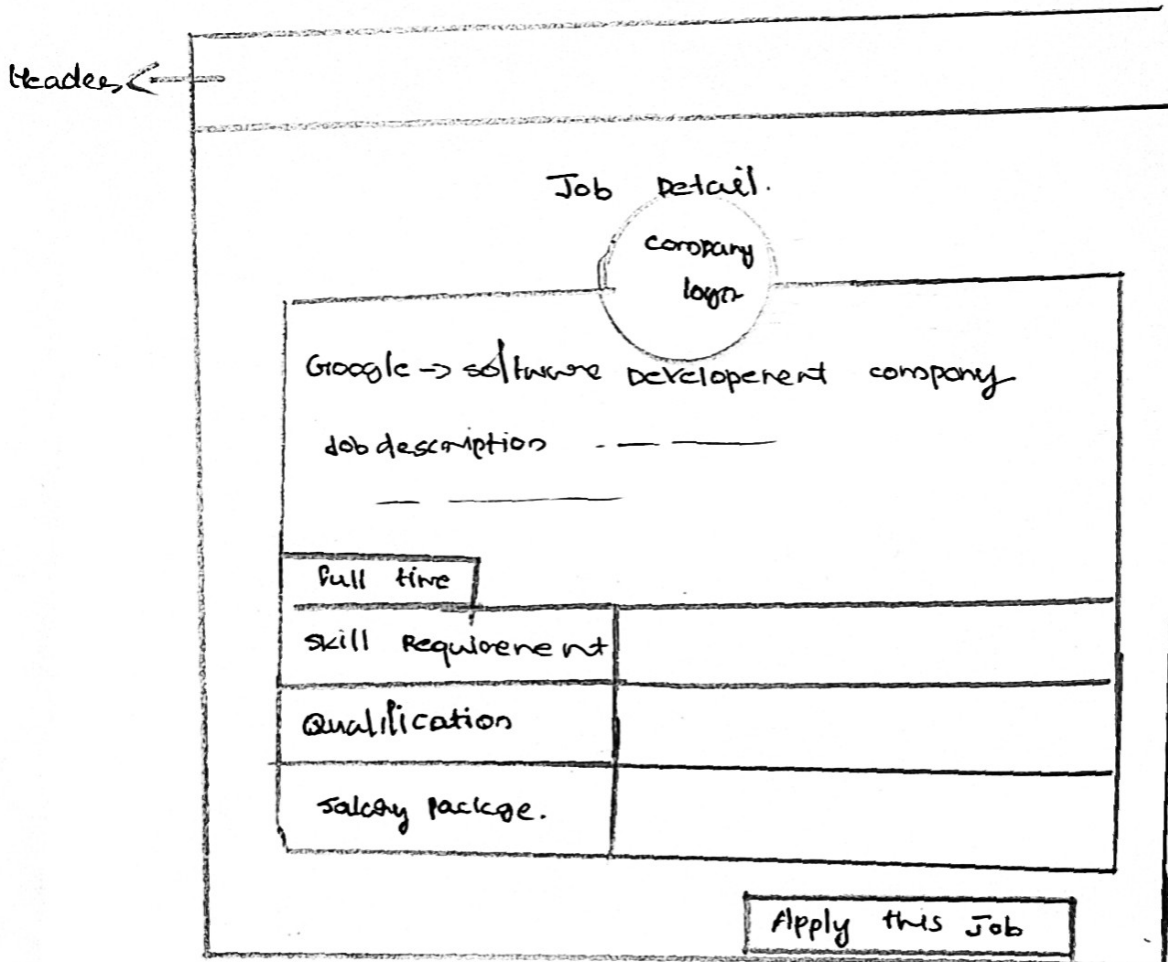 Header
Job Detail.
company
logo
Google -> software Developement company
Job description
full time
Skill Requirement
Qualification
Salary Package.
Apply this Job